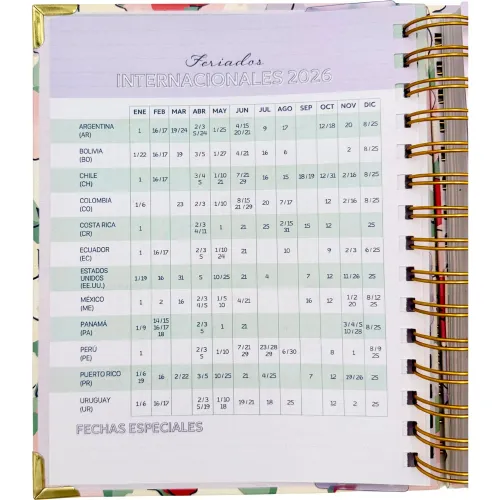 Feriados
INTERNACIONALES 2026
ENE FEB MAR ABR MAY JUN JUL AGO SEP OCT NOV DIC
ARGENTINA (AR) 1 16/17 19/24 2/3 5/24 1/25 4/15 20/21 9 17 12/18 20 8/25
BOLIVIA (BO) 1/22 16/17 19 3/5 1/27 4/21 16 6 2 8/25
CHILE (CH) 1 16/17 3/4 5 1/10 21 7/21 29 16 15 18/19 12/31 2/16 8/25
COLOMBIA (CO) 1/6 23 2/3 1/10 8/15 21/29 20 7/17 12 2/16 8/25
COSTA RICA (CR) 1 2/3 4/11 1 21 25 2/15 31 15 12 25
ECUADOR (EC) 1 16/17 3/5 1/10 24 21 10 9 2/3 6/25
ESTADOS UNIDOS (EE.UU.) 1/19 16 31 5 10/25 21 4 7 12 11/26 25
MÉXICO (ME) 1 2 16 2/3 4/5 1/5 10 4/21 16 12 1/2 20 8/12 25
PANAMÁ (PA) 1/9 14/15 16/17 18 2/3 5 1 21 3/4/5 10/28 8/25
PERÚ (PE) 1 2/3 5 1/10 7/21 29 23/28 29 6/30 8 1 8/9 25
PUERTO RICO (PR) 1/6 19 16 2/22 3/5 10/25 21 4/25 7 12 19/26 25
URUGUAY (UR) 1/6 16/17 2/3 5/19 1/10 18 19/21 18 25 12 2 25
FECHAS ESPECIALES